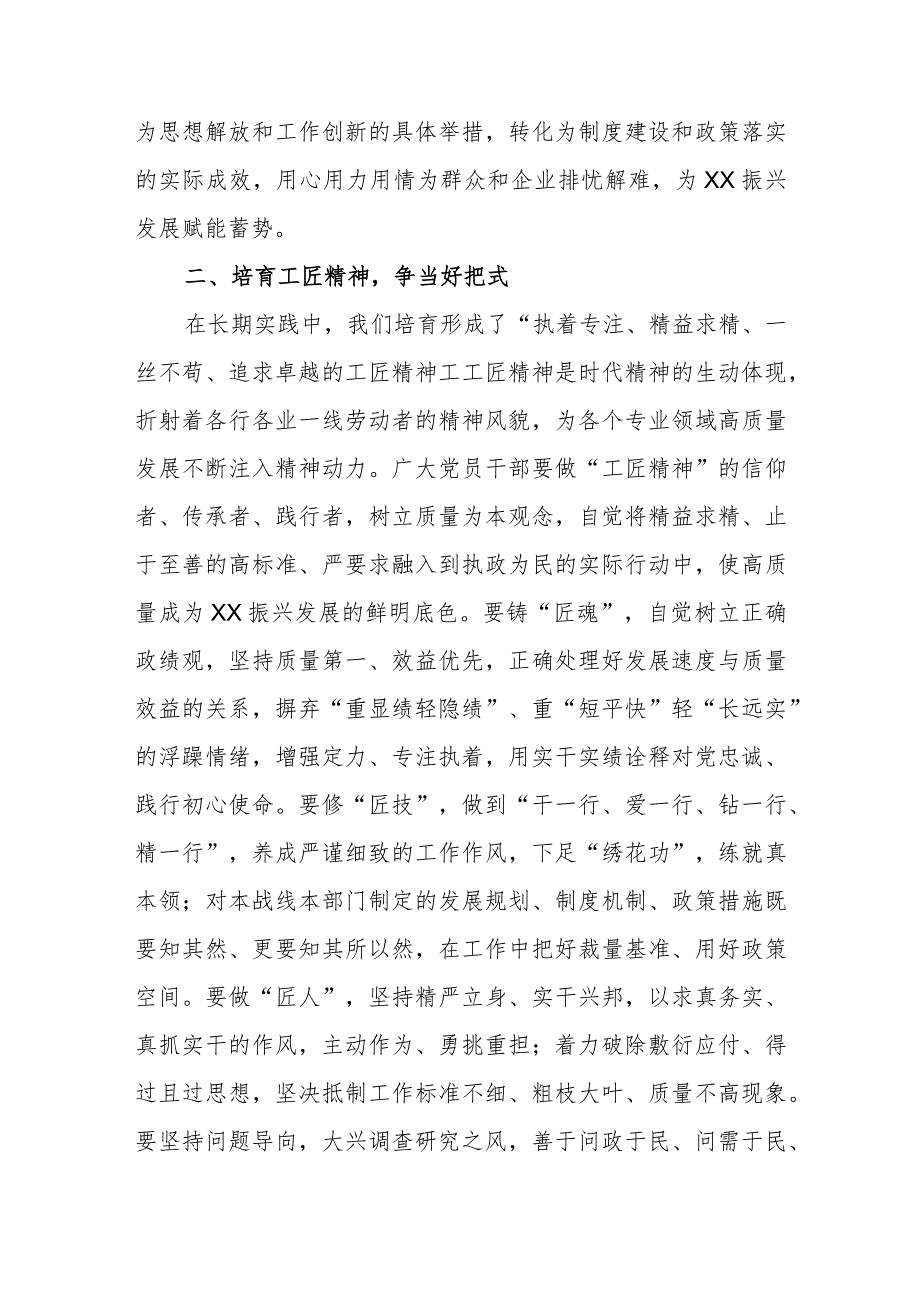 为思想解放和工作创新的具体举措，转化为制度建设和政策落实
的实际成效，用心用力用情为群众和企业排忧解难，为 XX 振兴
发展赋能蓄势。
二、培育工匠精神，争当好把式
在长期实践中，我们培育形成了“执着专注、精益求精、一
丝不苟、追求卓越的工匠精神工工匠精神是时代精神的生动体现，
折射着各行各业一线劳动者的精神风貌，为各个专业领域高质量
发展不断注入精神动力。广大党员干部要做“工匠精神”的信仰
者、传承者、践行者，树立质量为本观念，自觉将精益求精、止
于至善的高标准、严要求融入到执政为民的实际行动中，使高质
量成为 XX 振兴发展的鲜明底色。要铸“匠魂”，自觉树立正确
政绩观，坚持质量第一、效益优先，正确处理好发展速度与质量
效益的关系，摒弃“重显绩轻隐绩”、重“短平快”轻“长远实”
的浮躁情绪，增强定力、专注执着，用实干实绩诠释对党忠诚、
践行初心使命。要修“匠技”，做到“干一行、爱一行、钻一行、
精一行”，养成严谨细致的工作作风，下足“绣花功”，练就真
本领；对本战线本部门制定的发展规划、制度机制、政策措施既
要知其然、更要知其所以然，在工作中把好裁量基准、用好政策
空间。要做“匠人”，坚持精严立身、实干兴邦，以求真务实、
真抓实干的作风，主动作为、勇挑重担；着力破除敷衍应付、得
过且过思想，坚决抵制工作标准不细、粗枝大叶、质量不高现象。
要坚持问题导向，大兴调查研究之风，善于问政于民、问需于民、